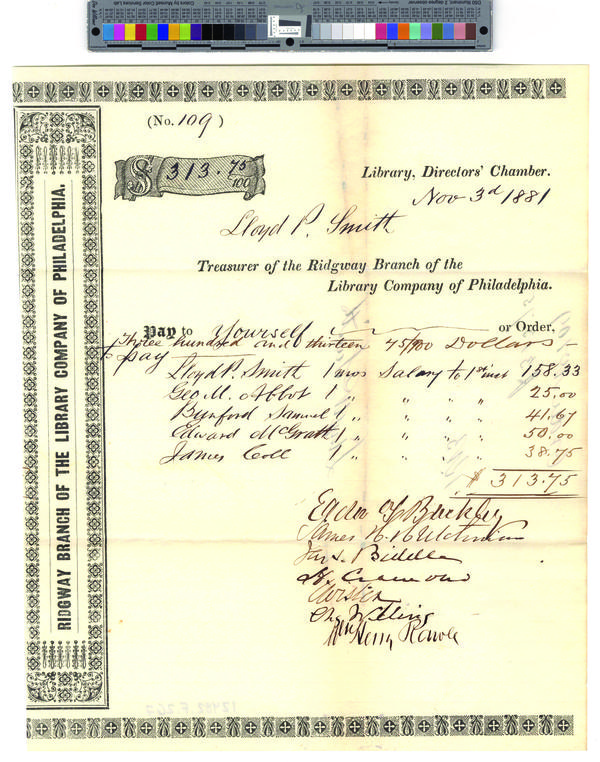 RIDGWAY BRANCH OF THE LIBRARY COMPANY OF PHILADELPHIA.
(No. 109)
$ 313.75/100
Library, Directors' Chamber.
Nov 3d 1881
Lloyd P. Smith
Treasurer of the Ridgway Branch of the
Library Company of Philadelphia.
Pay to Yourself or Order,
Three hundred and thirteen 75/100 Dollars
to pay
Lloyd P. Smith 1 mos Salary to 1st inst 158.33
Geo M. Abbot 1 " " " " 25.00
Bunford Samuel 1 " " " " 41.67
Edward McGrath 1 " " " " 50.00
James Coll 1 " " " " 38.75
$ 313.75
Buckley
James H. Hutchinson
Jas. S. Biddle
Wister
Wm Henry Rawle